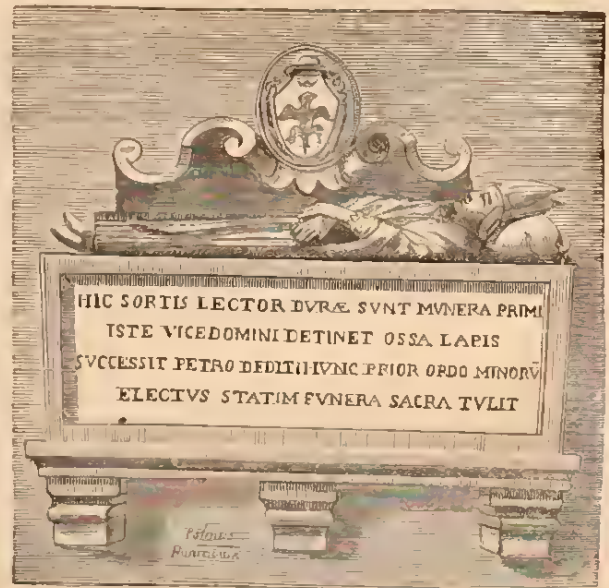 HIC SORTIS LECTOR DVRÆ SVNT MVNERA PRIMI
ISTE VICEDOMINI DETINET OSSA LAPIS
SVCCESSIT PETRO DEDIT HVNC PRIOR ORDO MINORŪ
ELECTVS STATIM FVNERA SACRA TVLIT